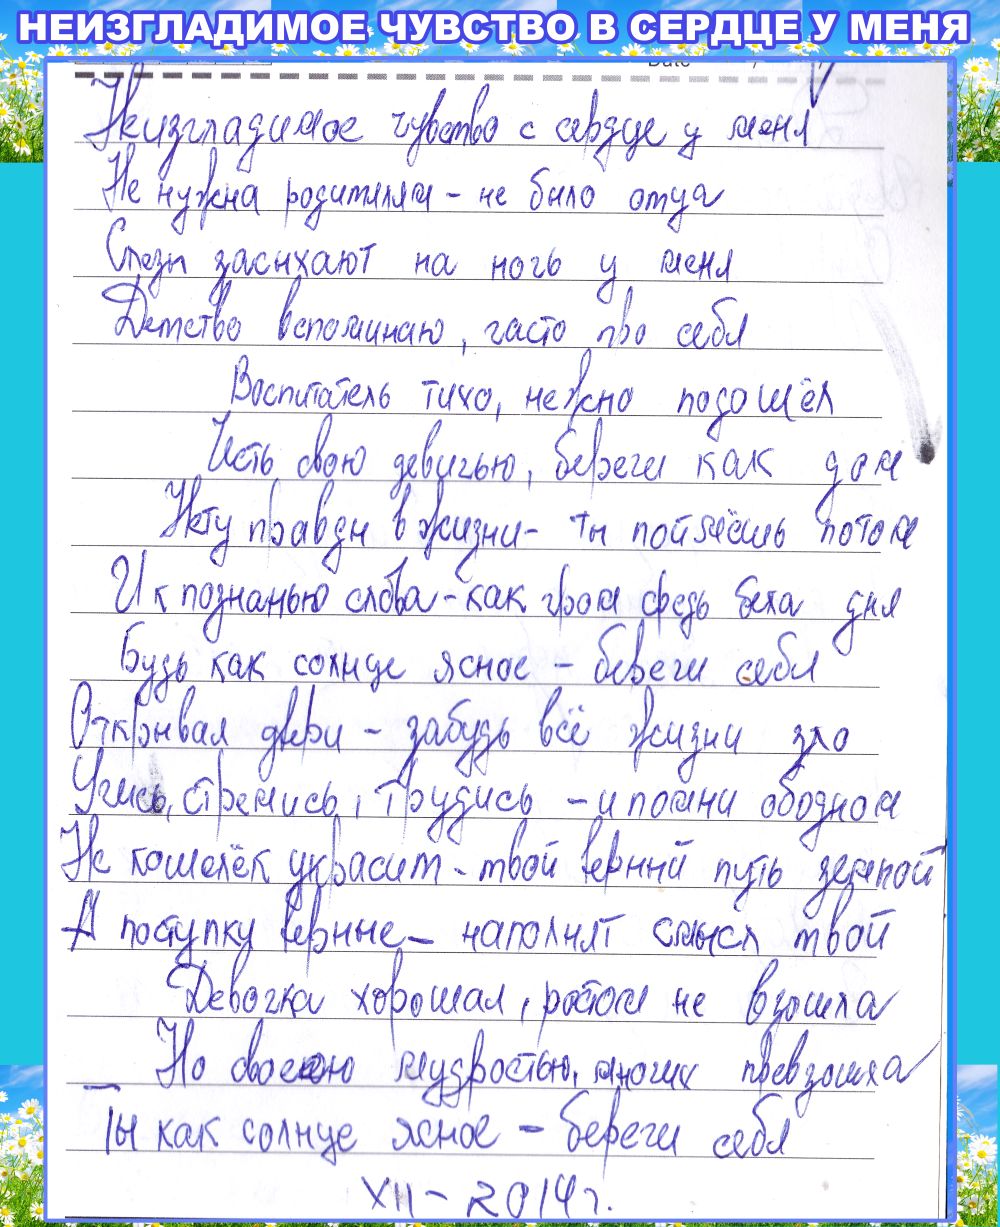 НЕИЗГЛАДИМОЕ ЧУВСТВО В СЕРДЦЕ У МЕНЯ
Date
Неизгладимое чувство с сердце у меня
Не нужна родителям - не было отца
Слезы засыхают на ночь у меня
Детство вспоминаю, часто про себя
Воспитатель тихо, нежно подошёл
Честь свою девичью, береги как дом
Нету правды в жизни - ты поймёшь потом
И к познанью слова - как гром средь бела дня
Будь как солнце ясное - береги себя
Открывая двери - забудь всё жизни зло
Учись, стремись, трудись - и помни ободном
Не кошелёк украсит - твой верный путь земной
А поступку верные - наполнят смысл твой
Девочка хорошая, ростом не взошла
Но своею мудростью, многих превзошла
Ты как солнце ясное - береги себя
XII - 2014 г.